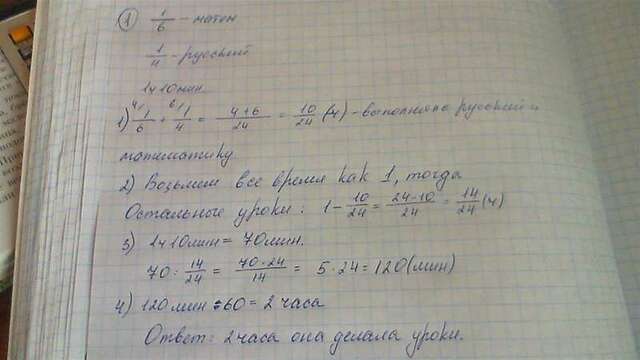 ① 1/6 - матем
1/4 - русский
1ч 10 мин
1) 4/ 1/6 + 6/ 1/4 = 4+6/24 = 10/24 (ч) - выполняла русский и
математику.
2) Возьмем все время как 1, тогда
Остальные уроки: 1 - 10/24 = 24-10/24 = 14/24 (ч)
3) 1ч 10мин = 70мин.
70 : 14/24 = 70·24/14 = 5·24 = 120 (мин)
4) 120 мин : 60 = 2 часа
Ответ: 2 часа она делала уроки.